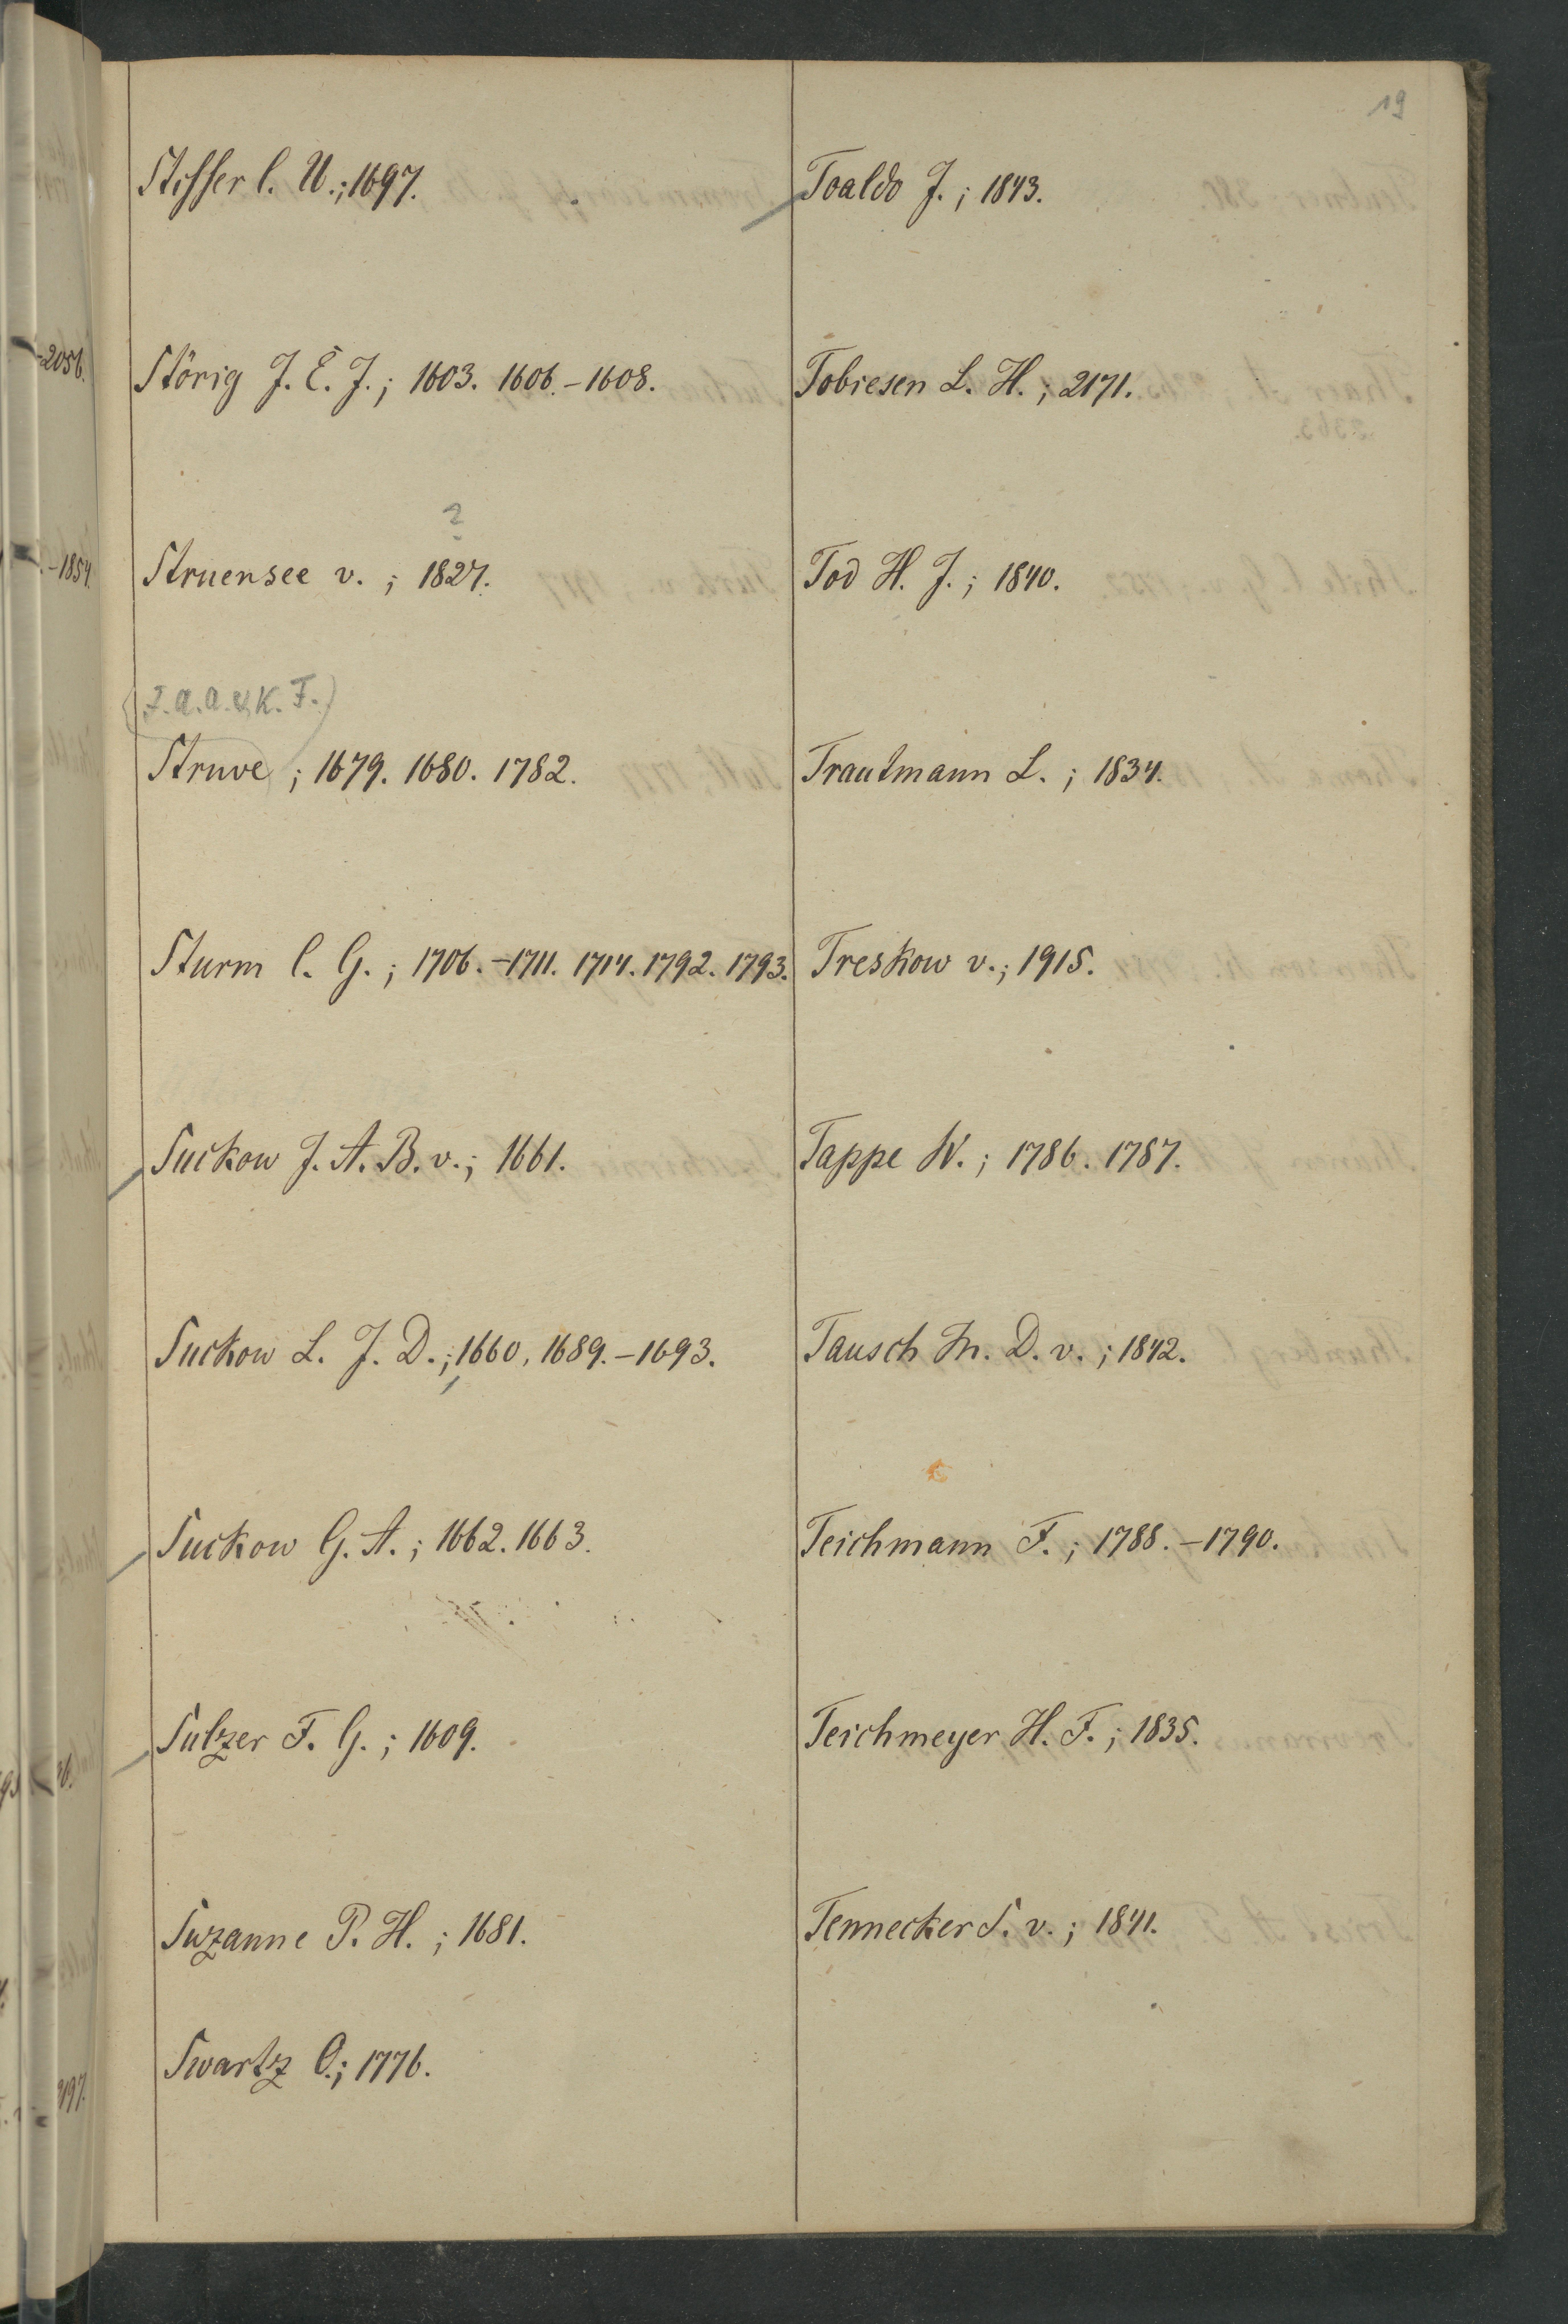 19
Stisser C. U.; 1697.
Störig J. E. J.; 1603. 1606.-1608.
?
Struensee v. ; 1827.
(F. A. A. & K. F.)
Struve ; 1679. 1680. 1782.
Sturm C. G.; 1706.-1711. 1714. 1792. 1793.
Suckow J. A. B. v.; 1661.
Suckow L. J. D.; 1660, 1689.-1693.
Suckow G. A.; 1662. 1663.
Sulzer F. G.; 1609.
Suzanne P. H.; 1681.
Swartz O.; 1776.
Toaldo J.; 1843.
Tobiesen L. H.; 2171.
Tod H. J.; 1840.
Trautmann L.; 1834.
Treskow v.; 1915.
Tappe W.; 1786. 1787.
Tausch D. v.; 1842.
Teichmann F.; 1788.-1790.
Teichmeyer H. F.; 1835.
Tennecker S. v.; 1841.
-2056.
-1854.